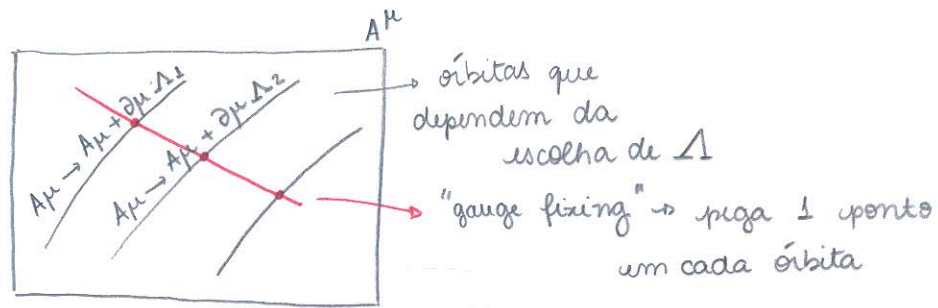 A^μ
Aμ → Aμ + ∂μ Λ1
Aμ → Aμ + ∂μ Λ2
órbitas que
dependem da
escolha de Λ
"gauge fixing" → pega 1 ponto
em cada órbita